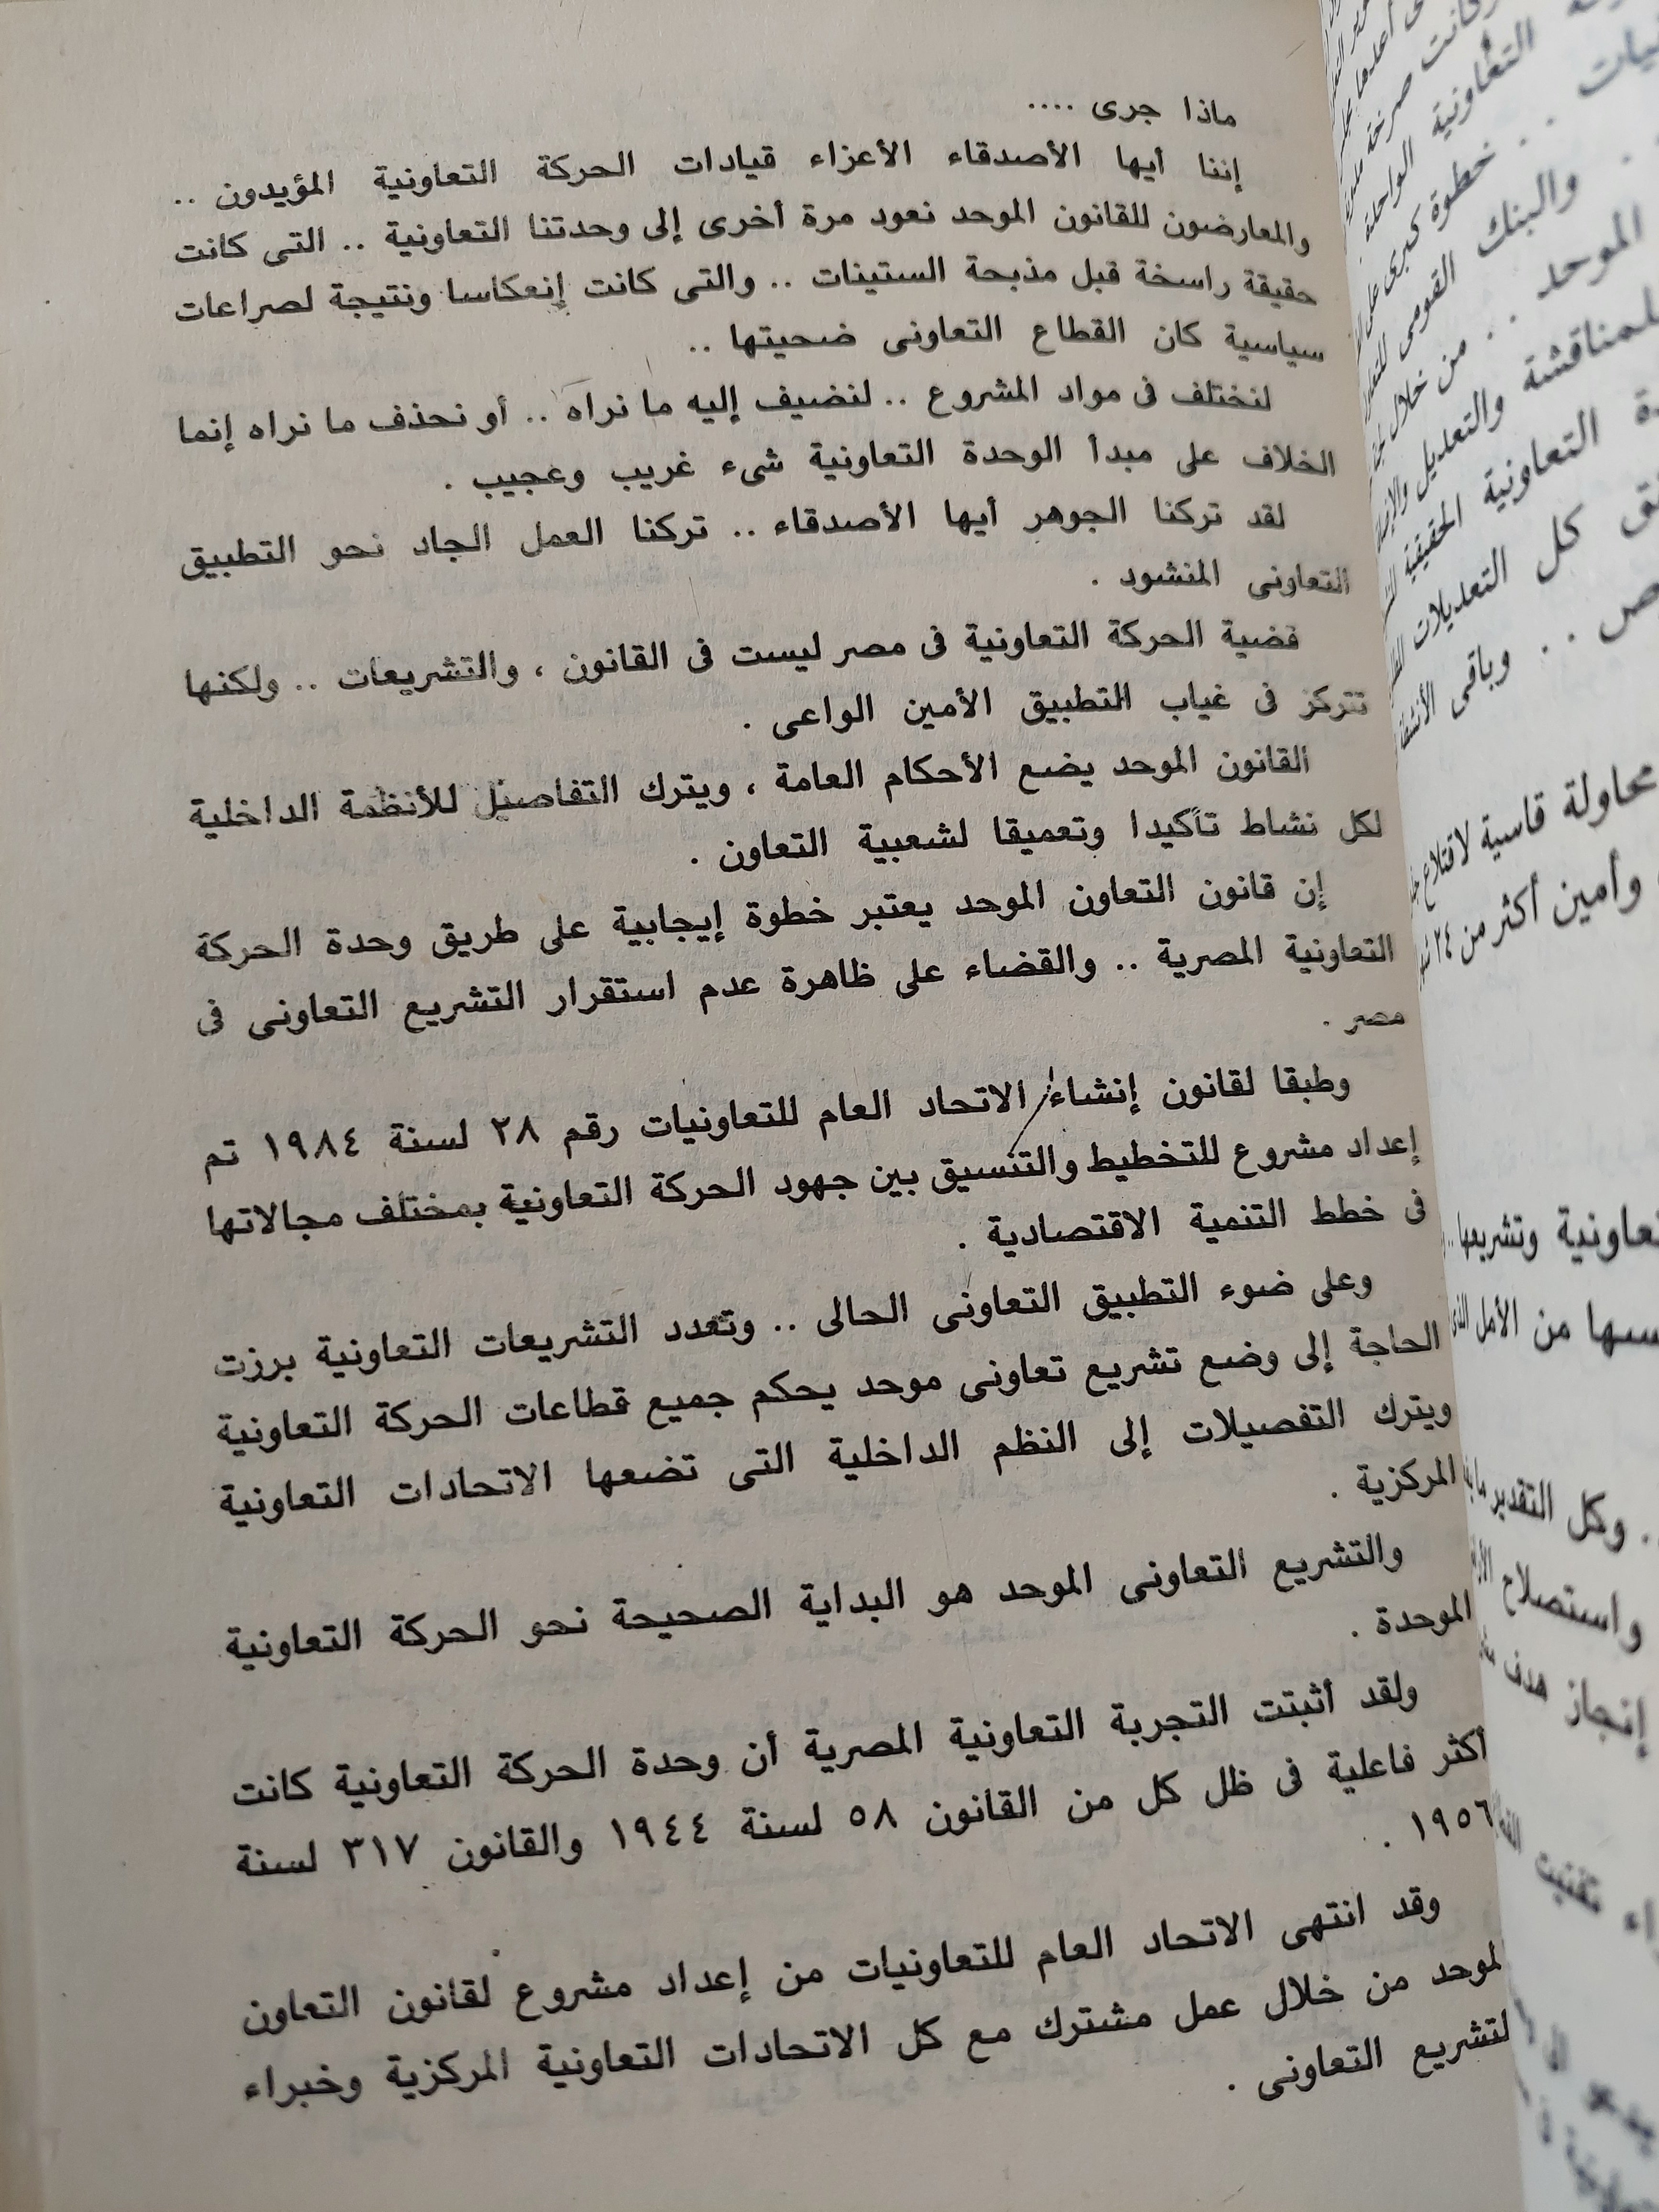 ماذا جرى ....
إننا أيها الأصدقاء الأعزاء قيادات الحركة التعاونية المؤيدون ..
والمعارضون للقانون الموحد نعود مرة أخرى إلى وحدتنا التعاونية .. التى كانت
حقيقة راسخة قبل مذبحة الستينات .. والتى كانت إنعكاسا ونتيجة لصراعات
سياسية كان القطاع التعاونى ضحيتها ..
لنختلف فى مواد المشروع .. لنضيف إليه ما نراه .. أو نحذف ما نراه إنما
الخلاف على مبدأ الوحدة التعاونية شىء غريب وعجيب .
لقد تركنا الجوهر أيها الأصدقاء .. تركنا العمل الجاد نحو التطبيق
التعاونى المنشود .
قضية الحركة التعاونية فى مصر ليست فى القانون ، والتشريعات .. ولكنها
تتركز فى غياب التطبيق الأمين الواعى .
القانون الموحد يضع الأحكام العامة ، ويترك التفاصيل للأنظمة الداخلية
لكل نشاط تأكيدا وتعميقا لشعبية التعاون .
إن قانون التعاون الموحد يعتبر خطوة إيجابية على طريق وحدة الحركة
التعاونية المصرية .. والقضاء على ظاهرة عدم استقرار التشريع التعاونى فى
مصر .
وطبقا لقانون إنشاء الاتحاد العام للتعاونيات رقم ٢٨ لسنة ١٩٨٤ تم
إعداد مشروع للتخطيط والتنسيق بين جهود الحركة التعاونية بمختلف مجالاتها
فى خطط التنمية الاقتصادية .
وعلى ضوء التطبيق التعاونى الحالى .. وتعدد التشريعات التعاونية برزت
الحاجة إلى وضع تشريع تعاونى موحد يحكم جميع قطاعات الحركة التعاونية
ويترك التفصيلات إلى النظم الداخلية التى تضعها الاتحادات التعاونية
المركزية .
والتشريع التعاونى الموحد هو البداية الصحيحة نحو الحركة التعاونية
الموحدة .
ولقد أثبتت التجربة التعاونية المصرية أن وحدة الحركة التعاونية كانت
أكثر فاعلية فى ظل كل من القانون ٥٨ لسنة ١٩٤٤ والقانون ٣١٧ لسنة
١٩٥٦ .
وقد انتهى الاتحاد العام للتعاونيات من إعداد مشروع لقانون التعاون
لموحد من خلال عمل مشترك مع كل الاتحادات التعاونية المركزية وخبراء
لتشريع التعاونى .
التعاونية الواحدة
خطوة كبرى على
والبنك القومى للتعاون
الموحد .. من خلال
للمناقشة والتعديل
التعاونية الحقيقية
كل التعديلات
.. وباقى الأنشطة
محاولة قاسية لاقتلاع
وأمين أكثر من ٢٤
وتشريعها ..
من الأمل الذى
.. وكل التقدير
واستصلاح
إنجاز هدف
تفتيت